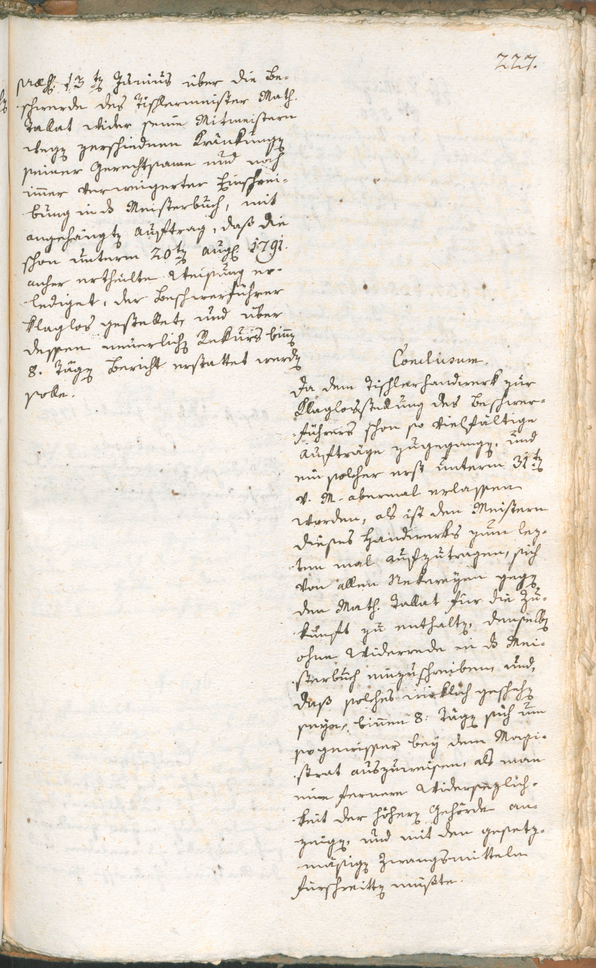 227.
præs. 13ten Junius über die Be-
schwerde des Tischlermeister Math.
Takat wider seine Mitmeistern
wegen verschiednen Kränkungen
seiner Gerechtsame und noch
immer verweigerter Einschrei-
bung in das Meisterbuch, mit
angehängten Auftrag, daß die
schon unterm 20ten Augs 1791.
anher ertheilte Weisung er-
lediget, der Beschwerführer
klaglos gestellet, und über
dessen neuerlichen Rekurs binnen
8. Tägen Bericht erstattet werden
solle.
Conclusum.
Da dem Tischlerhandwerk zur
Klaglosstellung des Beschwer-
führers schon so vielfältige
Aufträge zugegangen, und
ein solcher erst unterm 31ten
v. M. abermal erlassen
worden, als ist den Meistern
dieses Handwerks zum lez-
ten mal aufzutragen, sich
von allen Nekereyen gegen
den Math. Takat für die Zu-
kunft zu enthalten, denselben
ohne Widerrede in das Mei-
sterbuch einzuschreiben, und,
daß solches wirklich geschehen
seye, binnen 8. Tägen sich um
so gewisser bey dem Magi-
strat auszuweisen, als man
eine fernere Widersezlich-
keit der höhern Behörde an-
zeigen, und mit den gesetz-
mäsigen Zwangsmitteln
fürschreitten müßte.